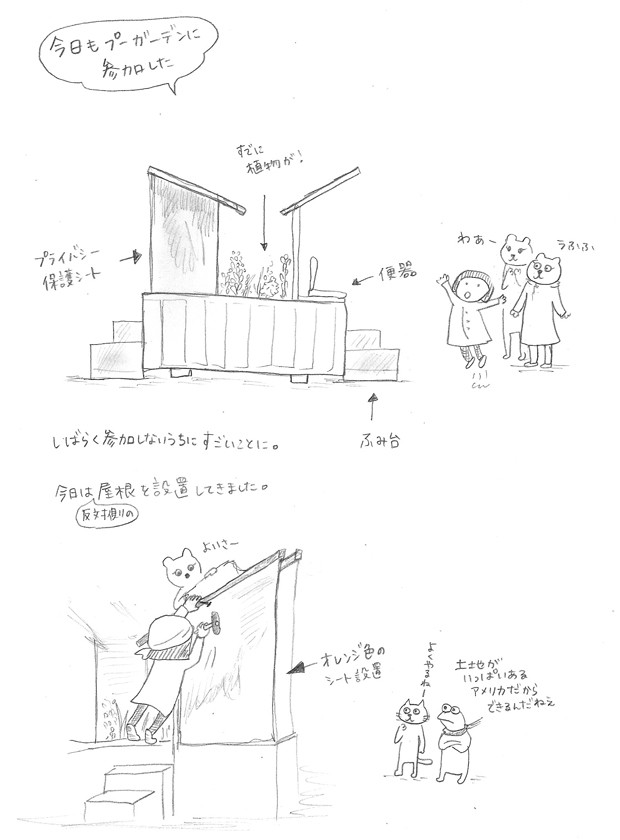 今日もプーガーデンに
参加した
すでに
植物が!
プライバシー
保護シート
便器
わぁー
うふふ
ふみ台
しばらく参加しないうちにすごいことに。
今日は屋根を設置してきました。
反対側の
よいさー
オレンジ色の
シート設置
よくやるねー
土地が
いっぱいある
アメリカだから
できるんだねえ